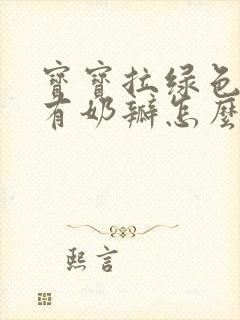 寶寶拉绿色
有奶瓣怎麼
熙言